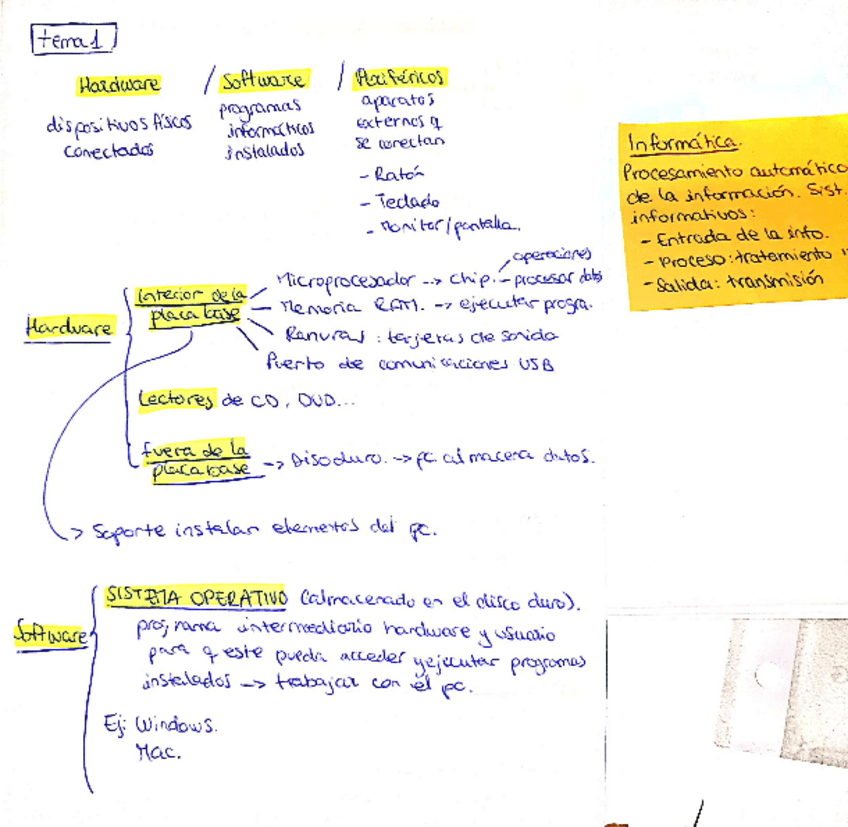 tema 1
Hardware / Software / Periféricos
dispositivos físcos
conectados
programas
informáticos
instalados
aparatos
externos q
se conectan
- Ratón
- Teclado
- Monitor/pantalla.
Informática.
Procesamiento automático
de la información. Sist.
informativos:
- Entrada de la info.
- Proceso: tratamiento
- Salida: transmisión
Hardware
Interior de la
placa base
Microprocesador --> chip.
operaciones
procesar datos
Memoria RAM. --> ejecutar progra.
Ranuras: tarjetas de sonido
Puerto de comunicaciones USB
Lectores de CD, DVD...
fuera de la
placa base
--> Disoduro. -> pc almacena datos.
> Soporte instalan elementos del pc.
Software
SISTEMA OPERATIVO (almacenado en el disco duro).
programa intermediario hardware y usuario
para q este pueda acceder y ejecutar programas
instalados --> trabajar con el pc.
Ej: Windows.
Mac.